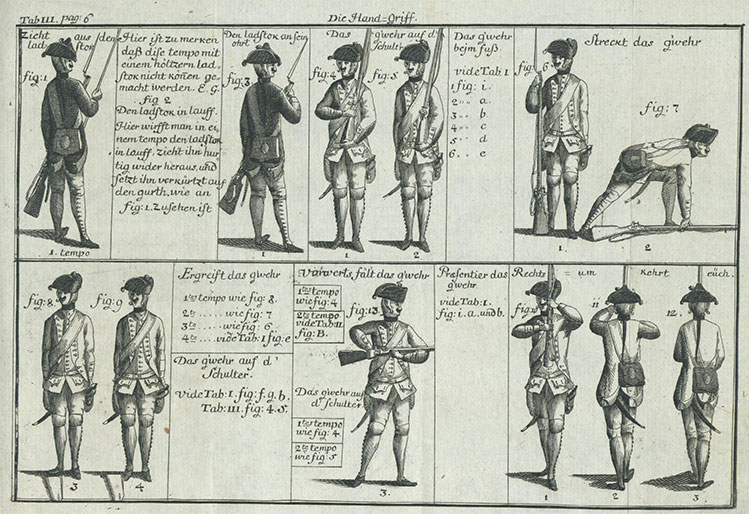 Tab III. pag: 6
Die Hand=Griff.
Zieht aus den
lad= stok
fig: 1
1. tempo
Hier ist zu merken
daß dise tempo mit
einem höltzern lad=
stok nicht könen ge=
macht werden. E. G.
fig 2
Den ladstok in lauff.
Hier wirfft man in ei=
nem tempo den ladstok
in lauff. zieht ihn hur=
tig wider heraus, und
setzt ihn verkürtzt auf
den gurth, wie an
fig: 1. Zusehen ist
Den ladstok an sein
ohrt
fig: 3
1
Das g'wehr auf d'
Schulter
fig: 4
fig: 5
1
2
Das g'wehr
beim fuß.
vide Tab I.
1 fig: i.
2 " " a
3 " " b
4 " " c
5 " " d
6 " " e
Streckt das g'wehr
fig: 6
fig: 7
1.
2
fig: 8.
fig: 9
3
4
Ergreift das g'wehr
1te tempo wie fig: 8.
2te ..... wie fig: 7
3te ..... wie fig: 6
4te ..... vide Tab I fig: e
Das g'wehr auf d'
Schulter.
Vide Tab: I. fig: f. g. h.
Tab: III. fig: 4. 5.
Vorwerts fält das g'wehr
1tes tempo
wie fig: 4
2tes tempo
vide Tab: II.
fig: B.
fig: 13
Das g'wehr auf
dr Schulter
1tes tempo
wie fig: 4
2tes tempo
wie fig: 5
3.
Præsentier das
g'wehr
vide Tab: I.
fig: i. a. und b.
Rechts = um kehrt euch.
fig: 10
11
12.
1
2
3.